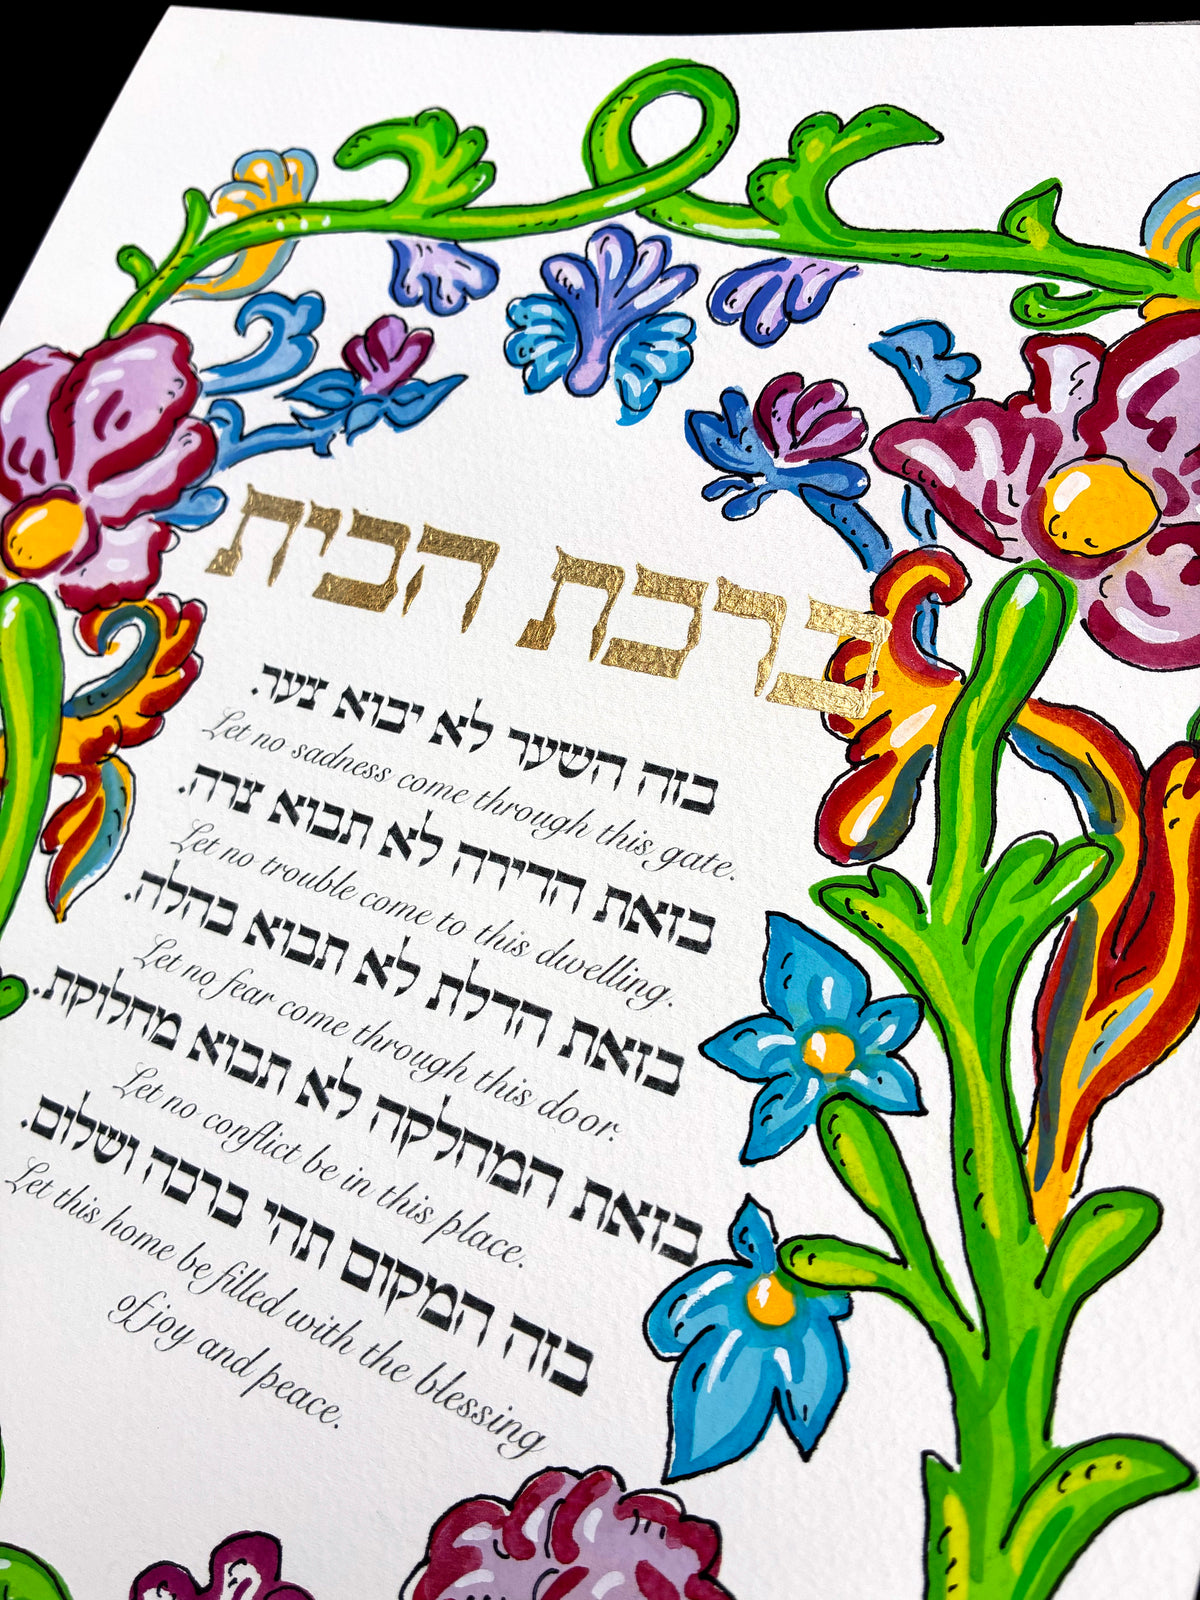 ברכת הבית
בזה השער לא יבוא צער.
Let no sadness come through this gate.
בזאת הדירה לא תבוא צרה.
Let no trouble come to this dwelling.
בזאת הדלת לא תבוא בהלה.
Let no fear come through this door.
בזאת המחלקה לא תבוא מחלוקת.
Let no conflict be in this place.
בזה המקום תהי ברכה ושלום.
Let this home be filled with the blessing
of joy and peace.